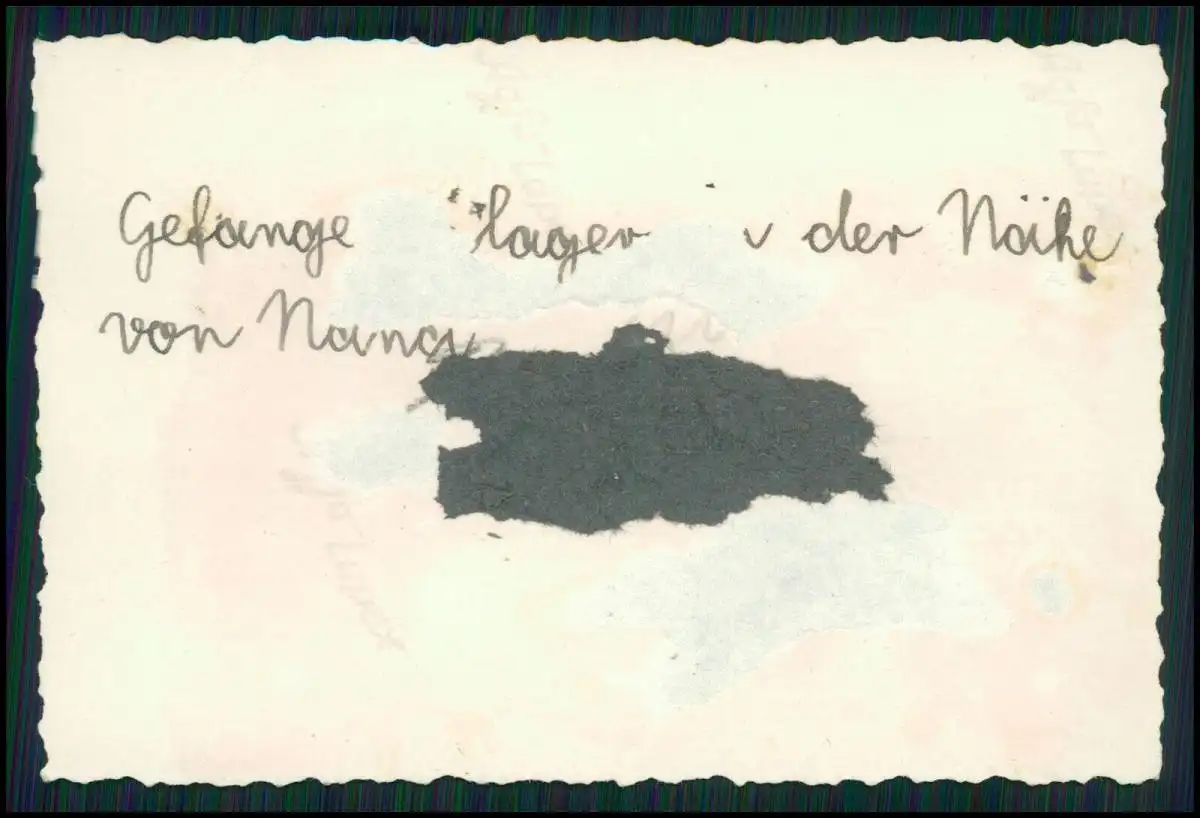 Gefange lager der Nähe
von Nancy